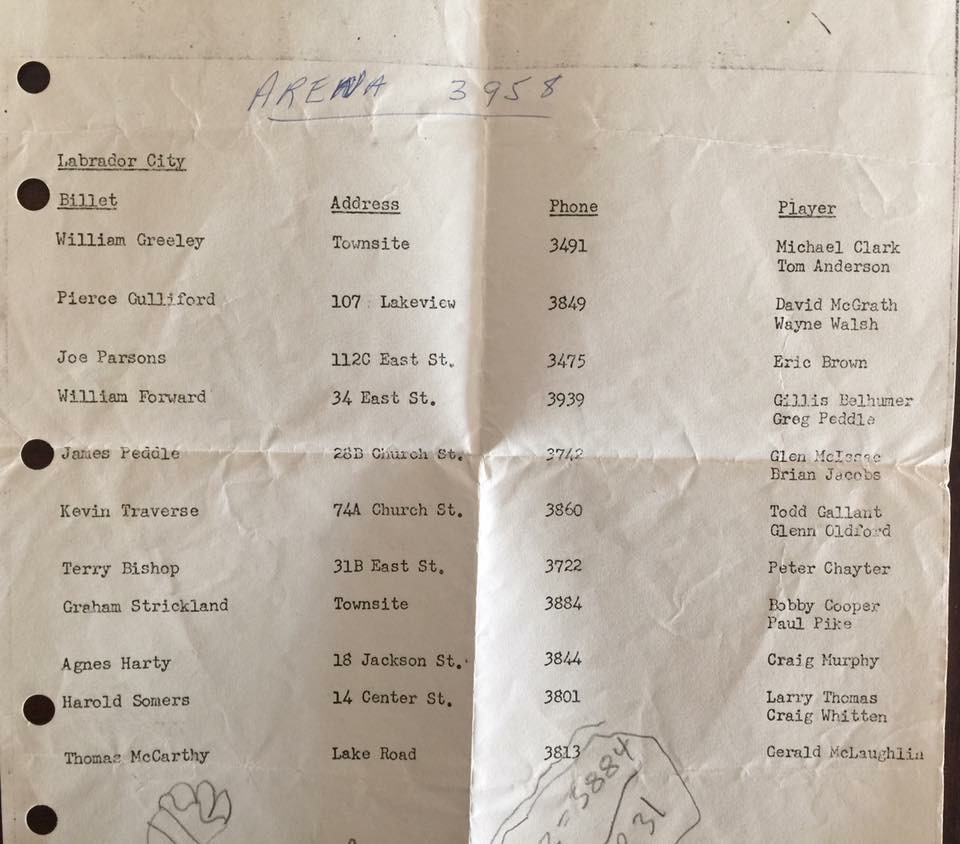 ARENA 3958
Labrador City
Billet Address Phone Player
William Greeley Townsite 3491 Michael Clark
Tom Anderson
Pierce Gulliford 107 Lakeview 3849 David McGrath
Wayne Walsh
Joe Parsons 112C East St. 3475 Eric Brown
William Forward 34 East St. 3939 Gillis Belhumer
Greg Peddle
James Peddle 28B Church St. 3742 Glen McIsaac
Brian Jacobs
Kevin Traverse 74A Church St. 3860 Todd Gallant
Glenn Oldford
Terry Bishop 31B East St. 3722 Peter Chayter
Graham Strickland Townsite 3884 Bobby Cooper
Paul Pike
Agnes Harty 18 Jackson St. 3844 Craig Murphy
Harold Somers 14 Center St. 3801 Larry Thomas
Craig Whitten
Thomas McCarthy Lake Road 3813 Gerald McLaughlin
3884